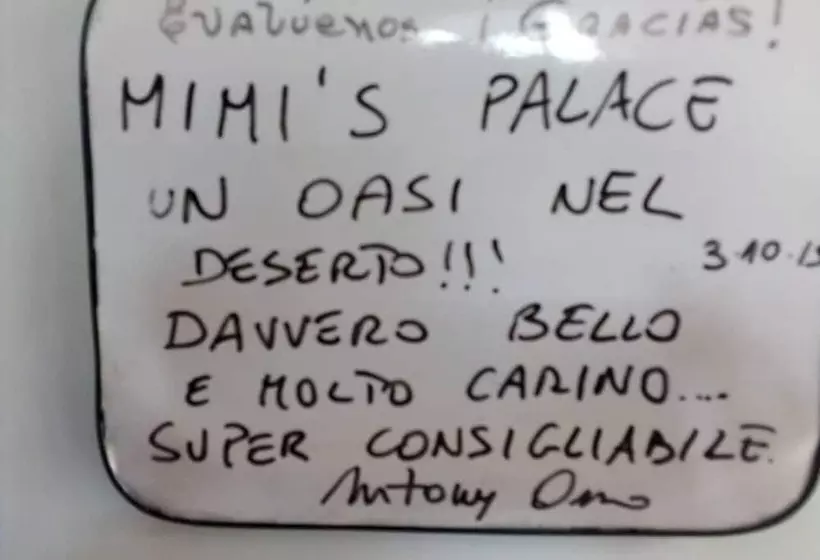 ¡GRACIAS!
MIMI'S PALACE
UN OASI NEL
DESERTO!!! 3.10.15
DAVVERO BELLO
E MOLTO CARINO....
SUPER CONSIGLIABILE.
Antony